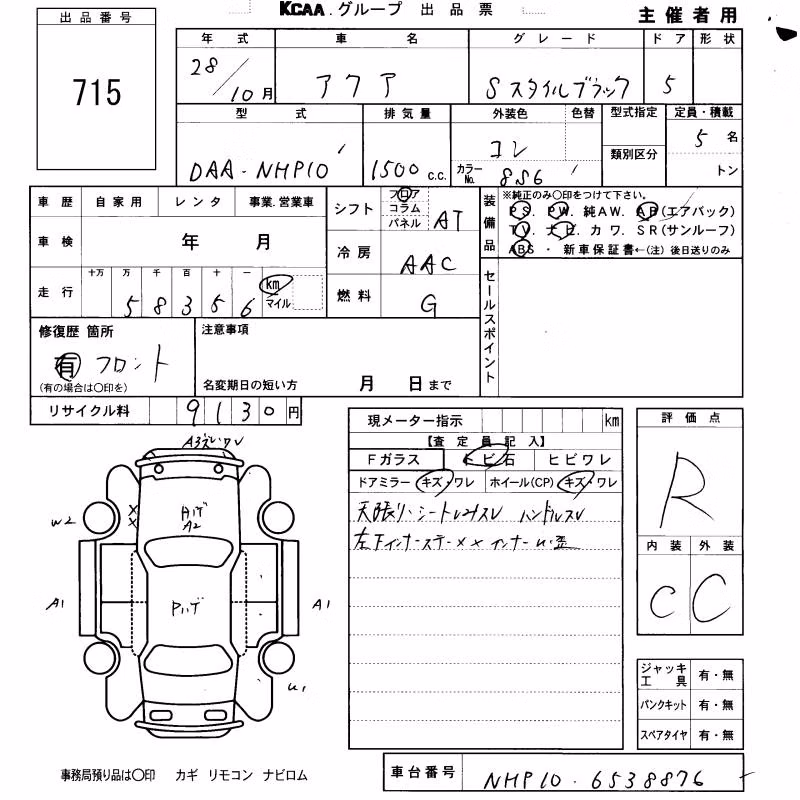 KCAA.グループ 出品票 主催者用
出品番号
715
年式 車名 グレード ドア 形状
28/10月 アクア Sスタイルブラック 5
型式 排気量 外装色 色替 型式指定 定員・積載
DAA-NHP10 1500c.c. コン カラーNo. 8S6 類別区分 5名
トン
車歴 自家用 レンタ 事業.営業車
シフト フロア コラム パネル AT
装備品 ※純正のみ〇印をつけて下さい。
PS. PW. 純AW. AB(エアバック)
TV. ナビ. カワ. SR(サンルーフ)
ABS・新車保証書←(注)後日送りのみ
車検 年 月
冷房 AAC
走行 十万 万 千 百 十 一 km マイル
58356
燃料 G
セールスポイント
修復歴 箇所
有 フロント
(有の場合は〇印を)
注意事項
名変期日の短い方 月 日まで
リサイクル料 9130円
現メーター指示 km
【査定員記入】
Fガラス トビ石 ヒビワレ
ドアミラー キズ・ワレ ホイール(CP) キズ・ワレ
天張り・シートシミスレ ハンドルスレ
評価点
R
内装 外装
C C
W2
××
Aハゲ
A2
Pハゲ
A1
A1
U1
ジャッキ工具 有・無
パンクキット 有・無
スペアタイヤ 有・無
事務局預り品は〇印 カギ リモコン ナビロム
車台番号 NHP10-6538876